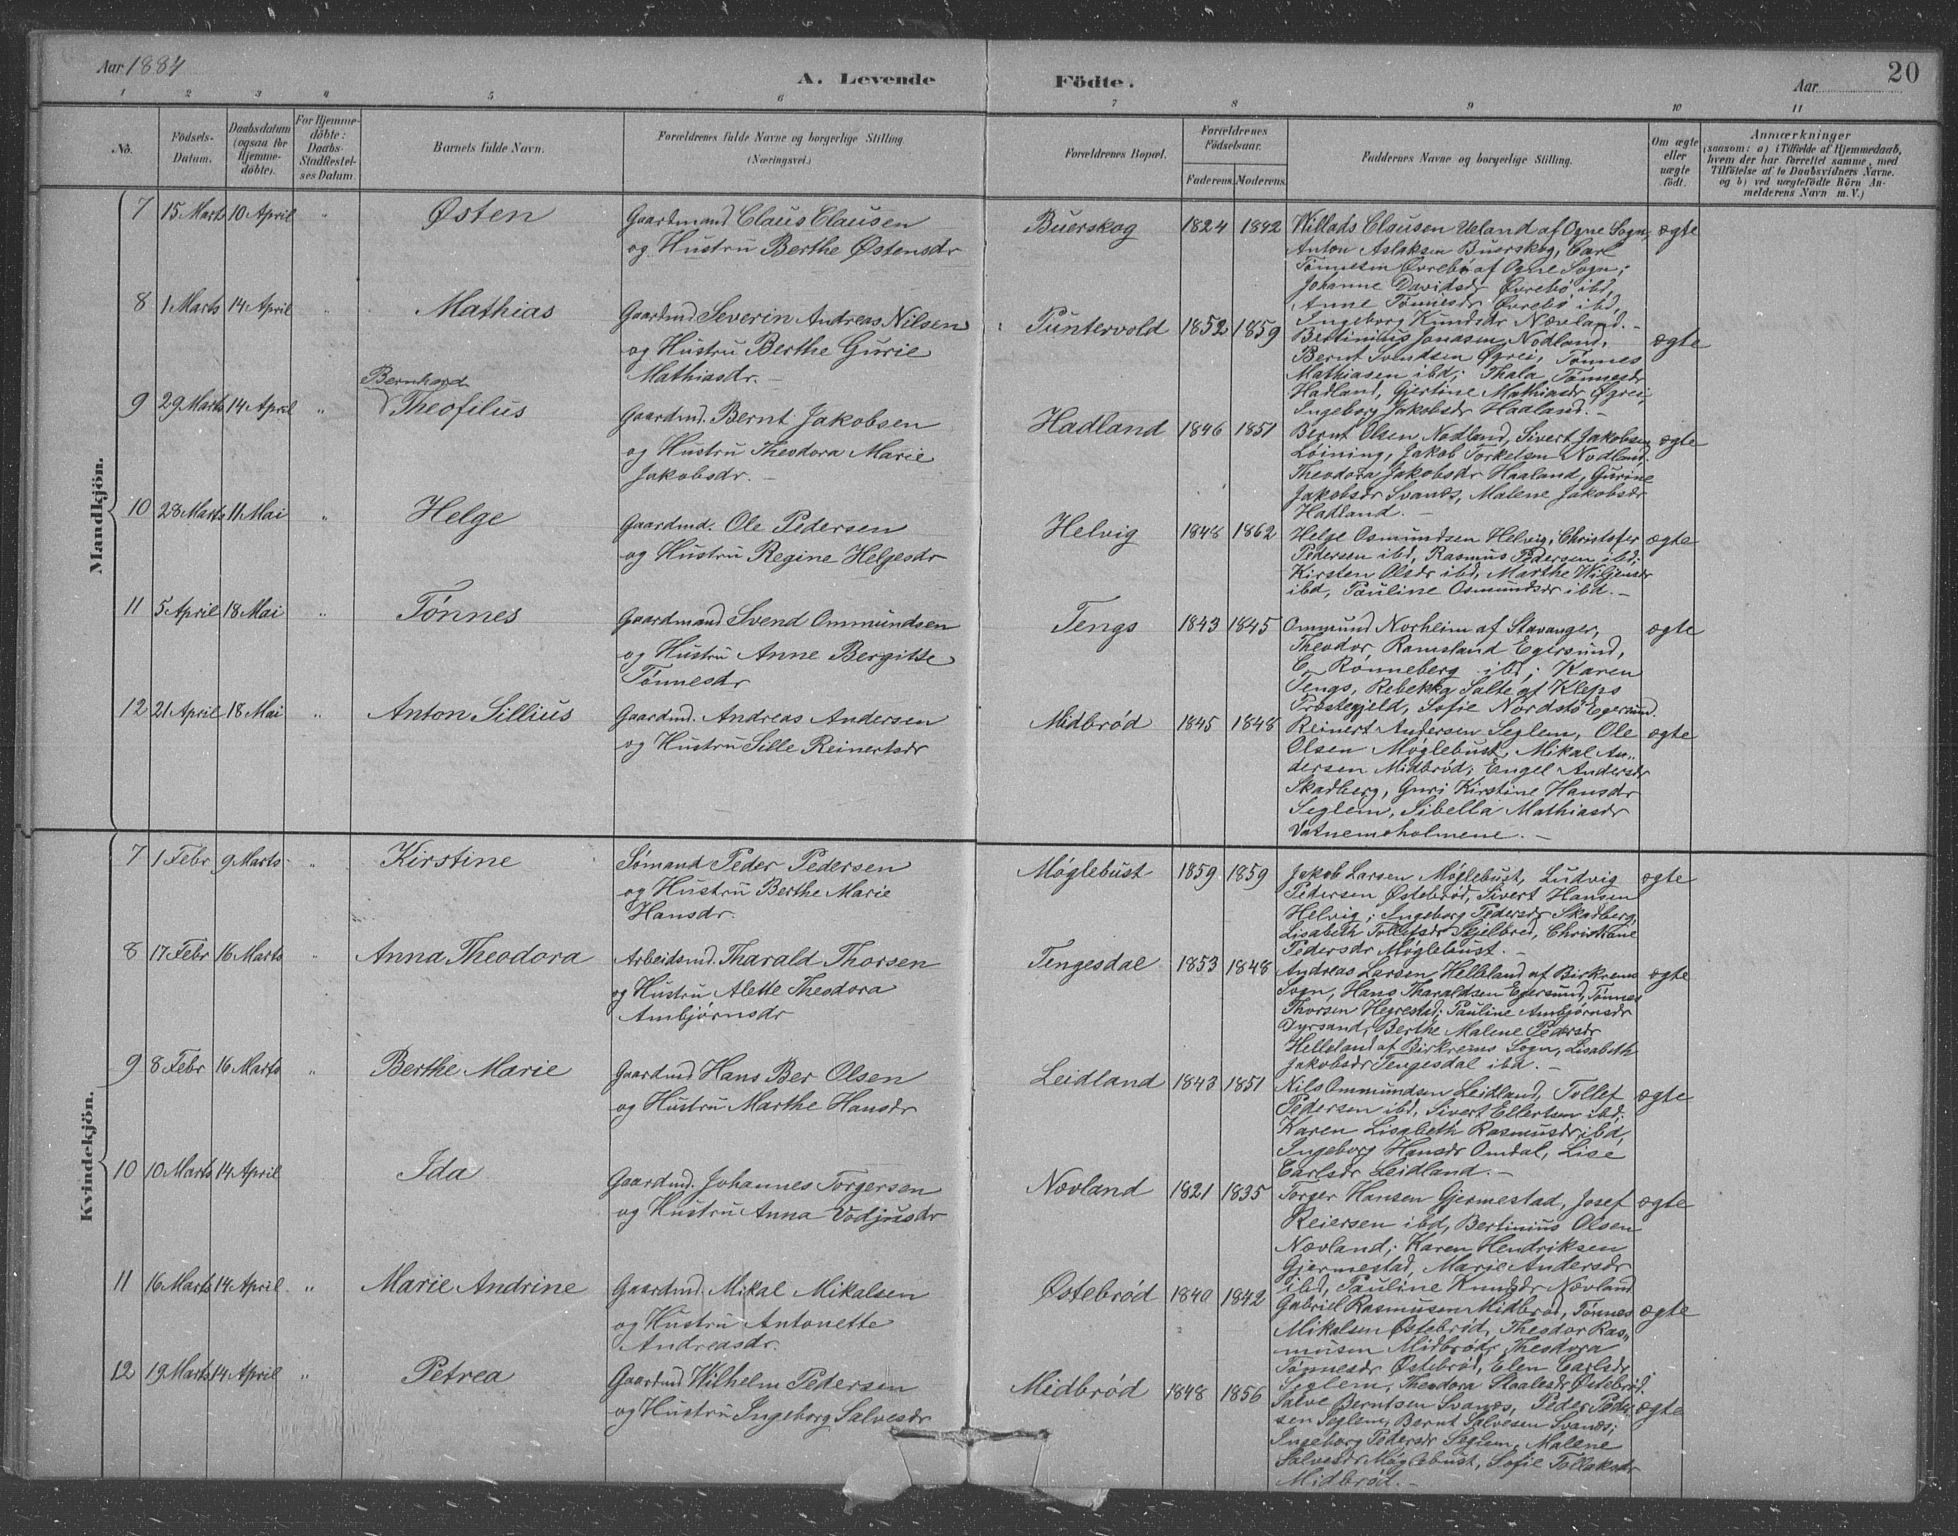 Aar 1884
A. Levende Födte.
Aar
20
1 2 3 4 5 6 7 8 9 10 11
No.
Födsels-Datum.
Daabsdatum (ogsaa for Hjemme-döbte).
For Hjemme-döbte: Daabs-Stadfæstel-ses Datum.
Barnets fulde Navn.
Forældrenes fulde Navne og borgerlige Stilling. (Næringsvei.)
Forældrenes Bopæl.
Forældrenes Födselsaar.
Faderens. Moderens.
Faddernes Navne og borgerlige Stilling.
Om ægte eller uægte födt.
Anmærkninger
(saasom: a) i Tilfælde af Hjemmedaab, hvem der har forrettet samme, med Tilföielse af to Daabsvidners Navne, og b) ved uægtefödte Börn Anmelderens Navn m. V.)
Mandkjön.
7 15 Marts 10 April " Østen
Gaardmand Claus Clausen
og Hustru Berthe Østensdr
Buerskog 1824 1842
Willads Clausen Ueland af Ogne Sogn,
Anton Aslaksen Buerskog, Carl
Tønnesen Øvrebø af Ogne Sogn;
Johanne Davidsdr Øvrebø ibd,
Anne Tønnesdr Øvrebø ibd,
Ingeborg Knudsdr Nævland. -
ægte
8 1 Marts 14 April " Mathias
Gaardmd Severin Andreas Nilsen
og Hustru Berthe Gurie
Mathiasdr. -
Puntervold 1852 1859
Bertinius Jonasen Nodland,
Bernt Svendsen Øgrei, Tønnes
Mathiasen ibd; Thala Tønnesdr
Hadland, Gjertine Mathiasdr Øgrei,
Ingeborg Jakobsdr Haaland. -
ægte
9 29 Marts 14 April " Bernhard
Theofilus
Gaardmd. Bernt Jakobsen
og Hustru Theodora Marie
Jakobsdr. -
Hadland 1846 1851
Bernt Olsen Nodland, Sivert Jakobsen
Løining, Jakob Torkelsen Nodland;
Theodora Jakobsdr Haaland, Gurine
Jakobsdr Svanes, Malene Jakobsdr
Hadland. -
ægte
10 28 Marts 11 Mai " Helge
Gaardmd. Ole Pedersen
og Hustru Regine Helgesdr
Helvig 1848 1862
Helge Osmundsen Helvig, Christofer
Pedersen ibd, Rasmus Pedersen ibd;
Kirsten Olsdr ibd, Marthe Wiljensdr
ibd, Pauline Osmundsdr ibd. -
ægte
11 5 April 18 Mai " Tønnes
Gaardmand Svend Ommundsen
og Hustru Anne Bergitte
Tønnesdr
Tengs 1843 1845
Ommund Norheim af Stavanger,
Theodor Ramsland Egersund,
C. Rønneberg ibd; Karen
Tengs, Rebekka Salte af Klepps
Præstegjeld, Sofie Nordstø Egersund.
ægte
12 21 April 18 Mai " Anton Sillius
Gaardmd. Andreas Andersen
og Hustru Sille Reinertsdr
Midbrød 1845 1848
Reinert Andersen Seglem, Ole
Olsen Møglebust, Mikal An-
dersen Midbrød; Engel Andersdr
Skadberg, Guri Kirstine Hansdr
Seglem, Sibella Mathiasdr
Vatnemoholmene. -
ægte
Kvindekjön.
7 1 Febr 9 Marts " Kirstine
Sømand Peder Pedersen
og Hustru Berthe Marie
Hansdr.
Møglebust 1859 1859
Jakob Larsen Møglebust, Ludvig
Pedersen Østebrød, Sivert Hansen
Helvig; Ingeborg Pedersdr Skadberg,
Lisabeth Tollefsdr Sjelbred, Christiane
Pedersdr Møglebust. -
ægte
8 17 Febr 16 Marts " Anna Theodora
Arbeidsmd. Tharald Thorsen
og Hustru Alette Theodora
Ambjørnsdr
Tengesdal 1853 1848
Andreas Larsen Helleland af Birkrems
Sogn, Hans Tharaldsen Egersund, Tønnes
Thorsen Hegrestad; Pauline Ambjørnsdr
Dyrsand, Berthe Malene Pedersdr
Helleland af Birkrems Sogn, Lisabeth
Jakobsdr Tengesdal ibd. -
ægte
9 8 Febr 16 Marts " Berthe Marie
Gaardmd Hans Ber Olsen
og Hustru Marthe Hansdr
Leidland 1843 1851
Nils Ommundsen Leidland, Tollef
Pedersen ibd, Sivert Ellertsen ibd;
Karen Lisabeth Rasmusdr ibd,
Ingeborg Hansdr Omdal, Lise
Carlsdr Leidland. -
ægte
10 10 Marts 14 April Ida
Gaardmd. Johannes Torgersen
og Hustru Anna Vodjusdr
Nævland 1821 1835
Torger Hansen Gjermestad, Josef
Reiersen ibd, Bertinius Olsen
Nævland; Karen Hendriksen
Gjermestad, Marie Andersdr
ibd, Pauline Knudsdr Nævland
ægte
11 16 Marts 14 April " Marie Andrine
Gaardmd. Mikal Mikalsen
og Hustru Antonette
Andreasdr.
Østebrød 1840 1842
Gabriel Rasmusen Midbrød, Tønnes
Mikalsen Østebrød, Theodor Ras-
musen Midbrød; Theodora
Tønnesdr Østebrød, Elen Carlsdr
Seglem, Theodora Staalesdr Østebrød.
ægte
12 19 Marts 14 April " Petrea
Gaardmd Wilhelm Pedersen
og Hustru Ingeborg Salvesdr
Midbrød 1848 1856
Salve Berntsen Svanes, Peder Peder-
sen Seglem, Bernt Salvesen Svanes;
Ingeborg Pedersdr Seglem, Malene
Salvesdr Møglebust, Sofie Tollaksdr
Midbrød. -
ægte